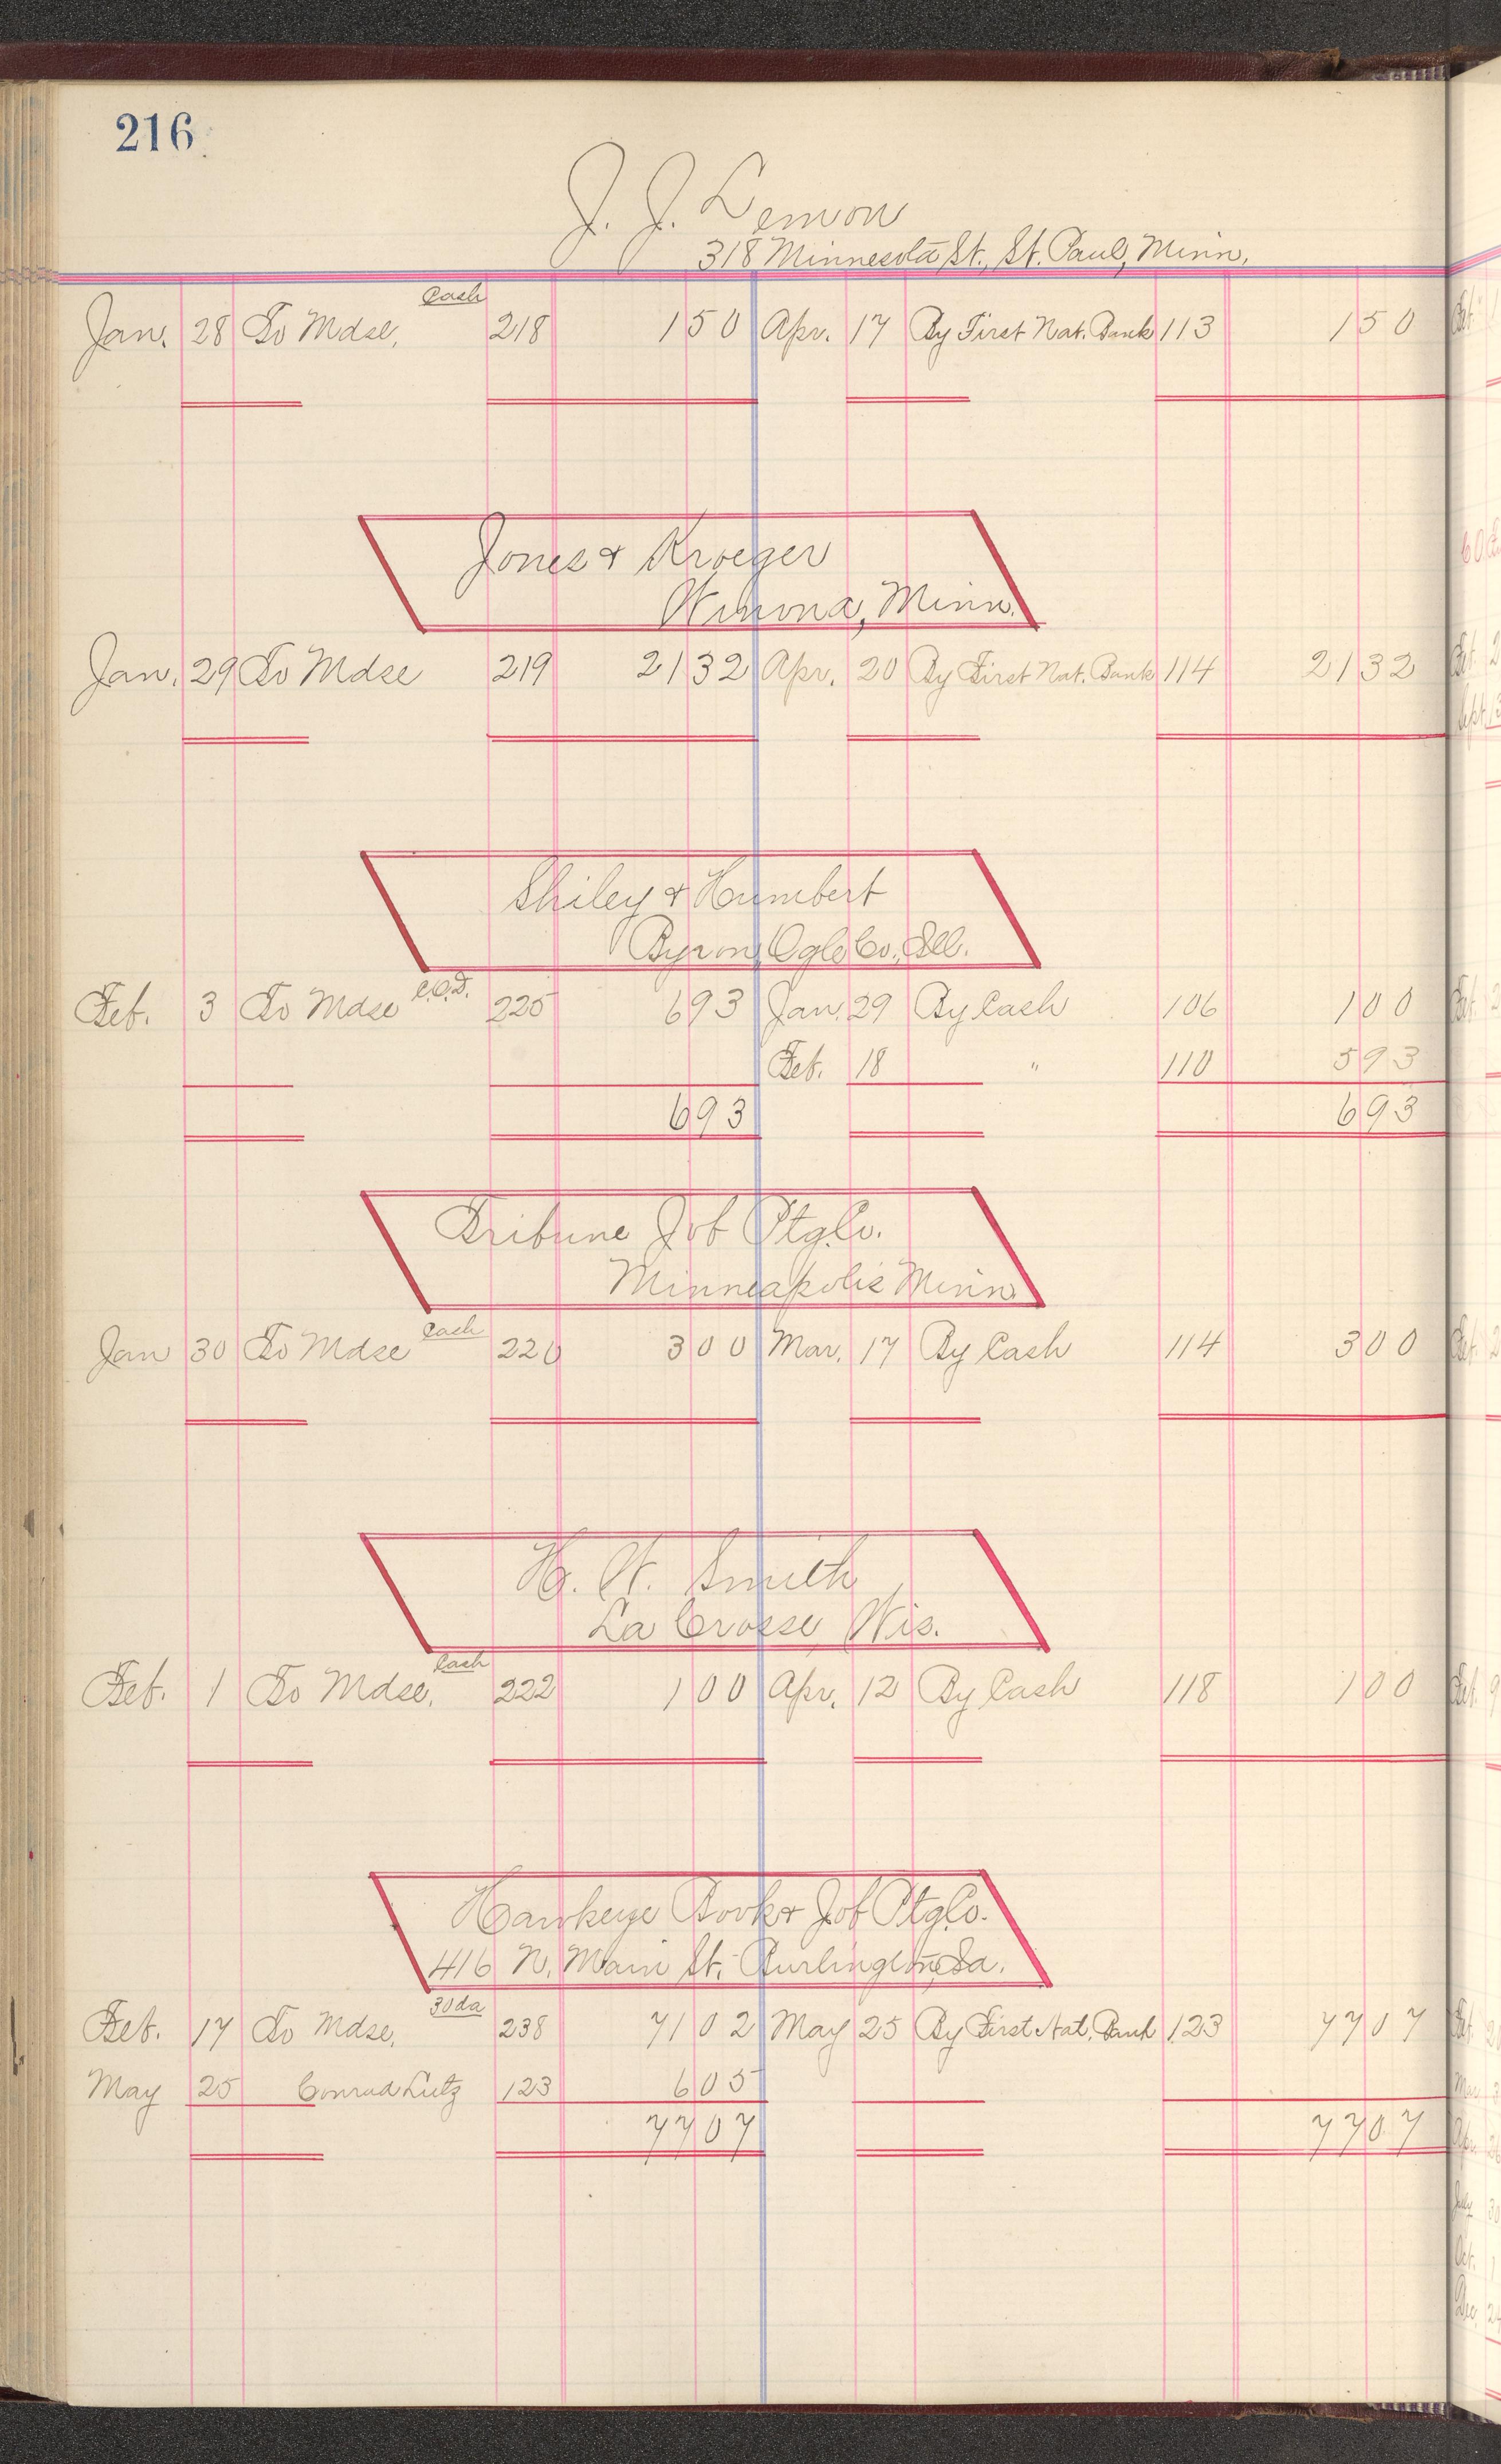 216
J. J. Lemon
318 Minnesota St., St. Paul, Minn.
Cash
Jan. 28 To Mdse, 218 150 Apr. 17 By First Nat. Bank 113 150
Jones & Kroeger
Winona, Minn.
Jan. 29 To Mdse 219 2132 Apr. 20 By First Nat. Bank 114 2132
Shiley & Humbert
Byron, Ogle Co., Ill.
C.O.D.
Feb. 3 To Mdse 225 693 Jan. 29 By Cash 106 100
Feb. 18 " 110 593
693 693
Tribune Job Ptg. Co.
Minneapolis Minn.
Cash
Jan 30 To Mdse 220 300 Mar. 17 By Cash 114 300
H. W. Smith
La Crosse, Wis.
Cash
Feb. 1 To Mdse, 222 100 Apr. 12 By Cash 118 100
Hawkeye Book & Job Ptg. Co.
416 N. Main St., Burlington, Ia.
30 da
Feb. 17 To Mdse, 238 7102 May 25 By First Nat. Bank 123 7707
May 25 Conrad Lutz 123 605
7707 7707